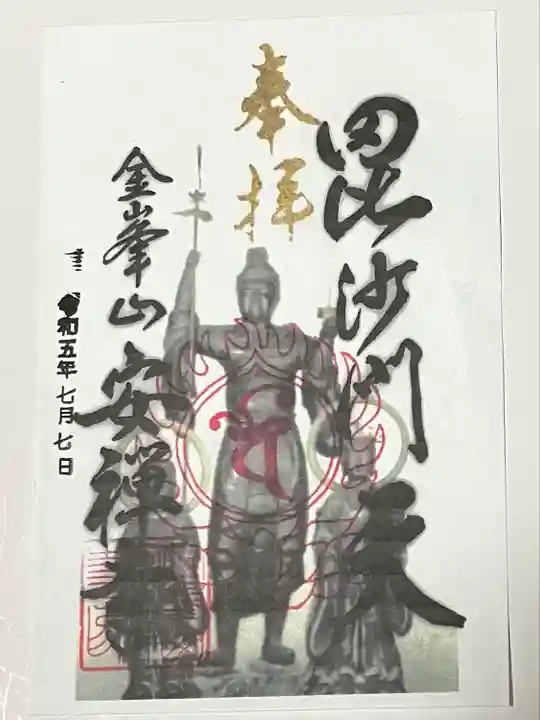 奉拝
毘沙門天
金峯山
安禅寺
令和五年七月七日